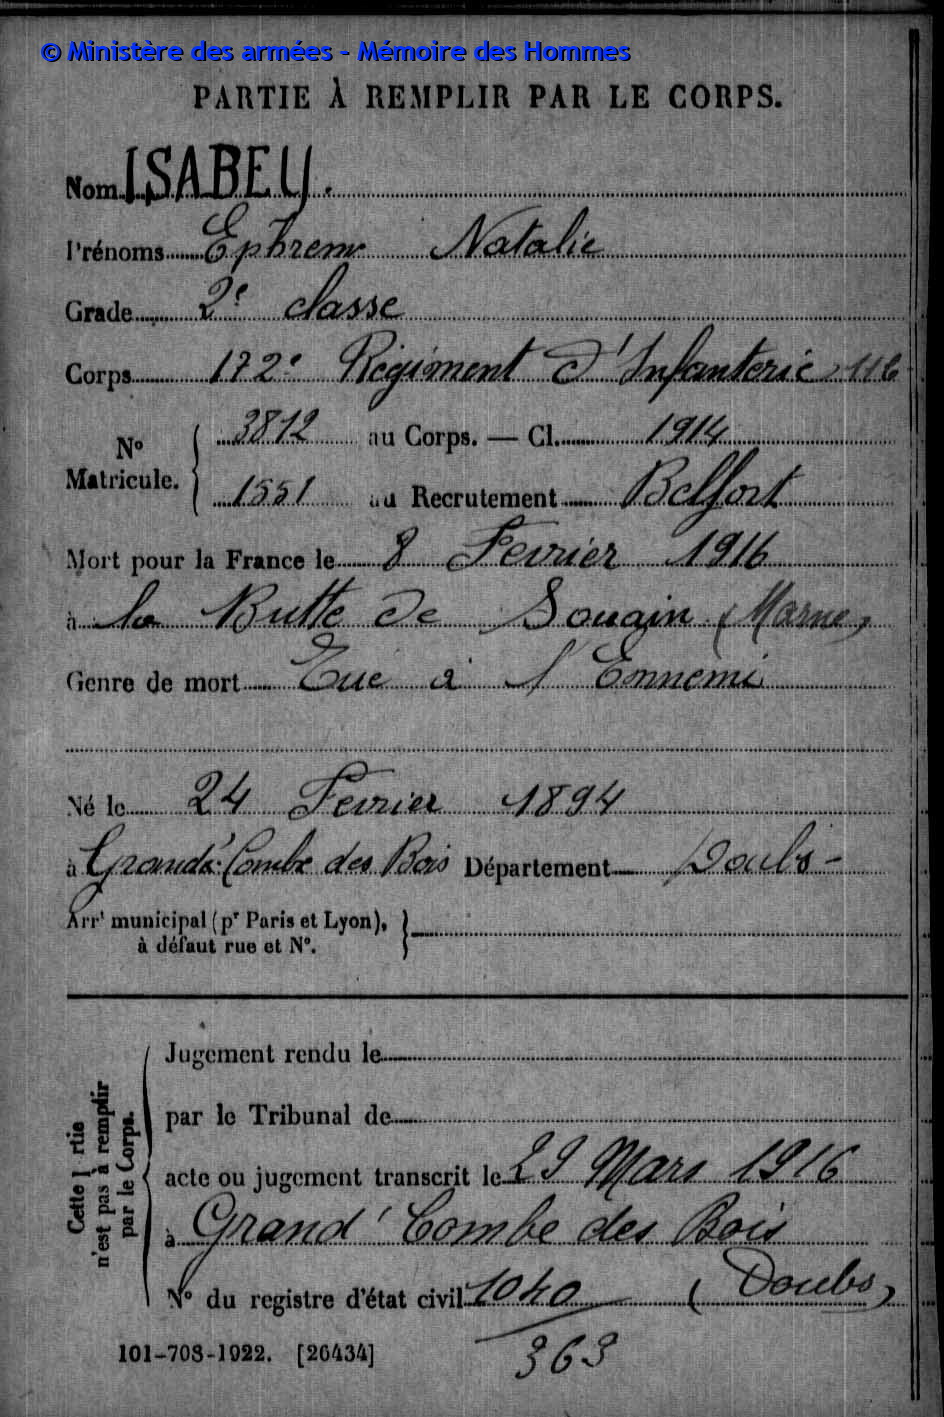 © Ministère des armées - Mémoire des Hommes
PARTIE À REMPLIR PAR LE CORPS.
Nom ISABEY.
Prénoms Ephrem Natalie
Grade 2e classe
Corps 172e Régiment d'Infanterie 116
N° Matricule. { 3812 au Corps. — Cl. 1914
1551 au Recrutement Belfort
Mort pour la France le 8 Fevrier 1916
à la Butte de Souain (Marne)
Genre de mort Tué à l'Ennemi
Né le 24 Fevrier 1894
à Grand'Combe des Bois Département Doubs -
Arrt municipal (pr Paris et Lyon),
à défaut rue et N°. }
Cette P rtie
n'est pas à remplir
par le Corps.
Jugement rendu le
par le Tribunal de
acte ou jugement transcrit le 29 Mars 1916
à Grand'Combe des Bois
N° du registre d'état civil 1040 (Doubs)
363
101-708-1922. [26434]